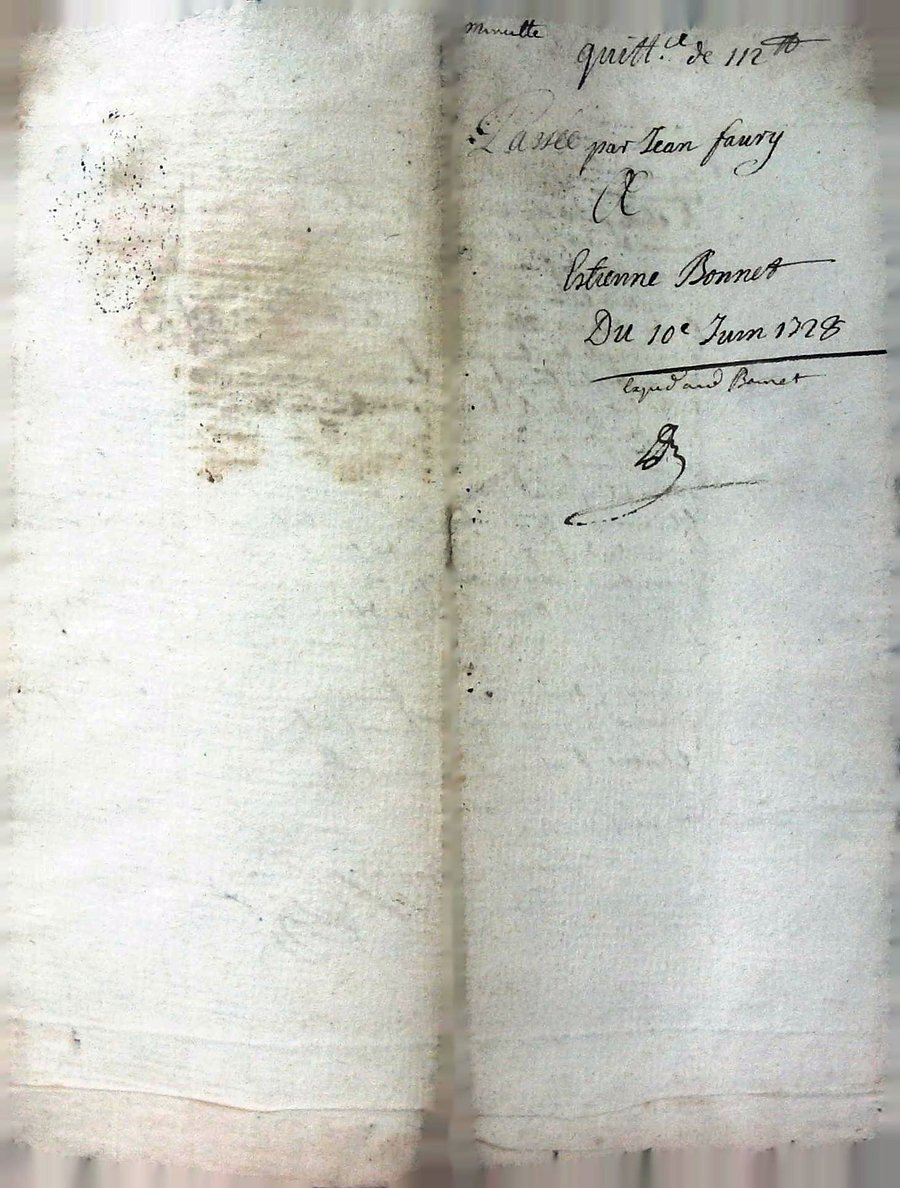 minutte
quitt.ce de 112 ₶
Passée par Jean faury
A
Estienne Bonnet
Du 10e Juin 1728
Expéd aud Bonnet